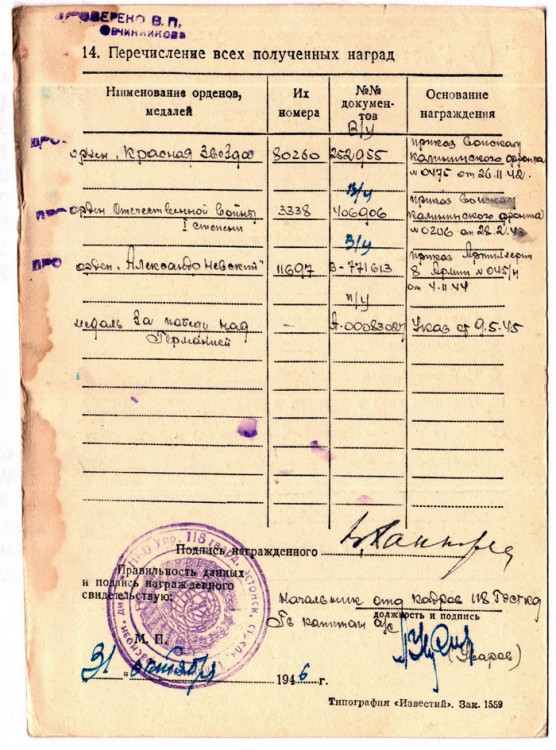 ПРОВЕРЕНО В. П.
ОВЧИННИКОВА
14. Перечисление всех полученных наград
Наименование орденов, медалей
Их номера
№№ докумен-тов
Основание награждения
в/у
орден „Красная Звезда 80260 252955 приказ войскам
Калининского фронта
№ 0475 от 26.11.42.
в/у
орден Отечественной Войны 3338 406906 приказ войскам
I степени Калининского фронта
№ 0206 от 28.2.43
в/у
орден „Александр Невский" 11697 В-771613 приказ Артиллерии
8 Армии № 045/н
от 4.11.44
п/у
медаль За победу над — А-0083087 Указ от 9.5.45
Германией
Подпись награжденного
Правильность данных
и подпись награжденного
свидетельствую:
Начальник отд кадров 118
должность и подпись
Гв капитан а/с
М. П.
31 октября 1946 г.
Типография «Известий». Зак. 1559